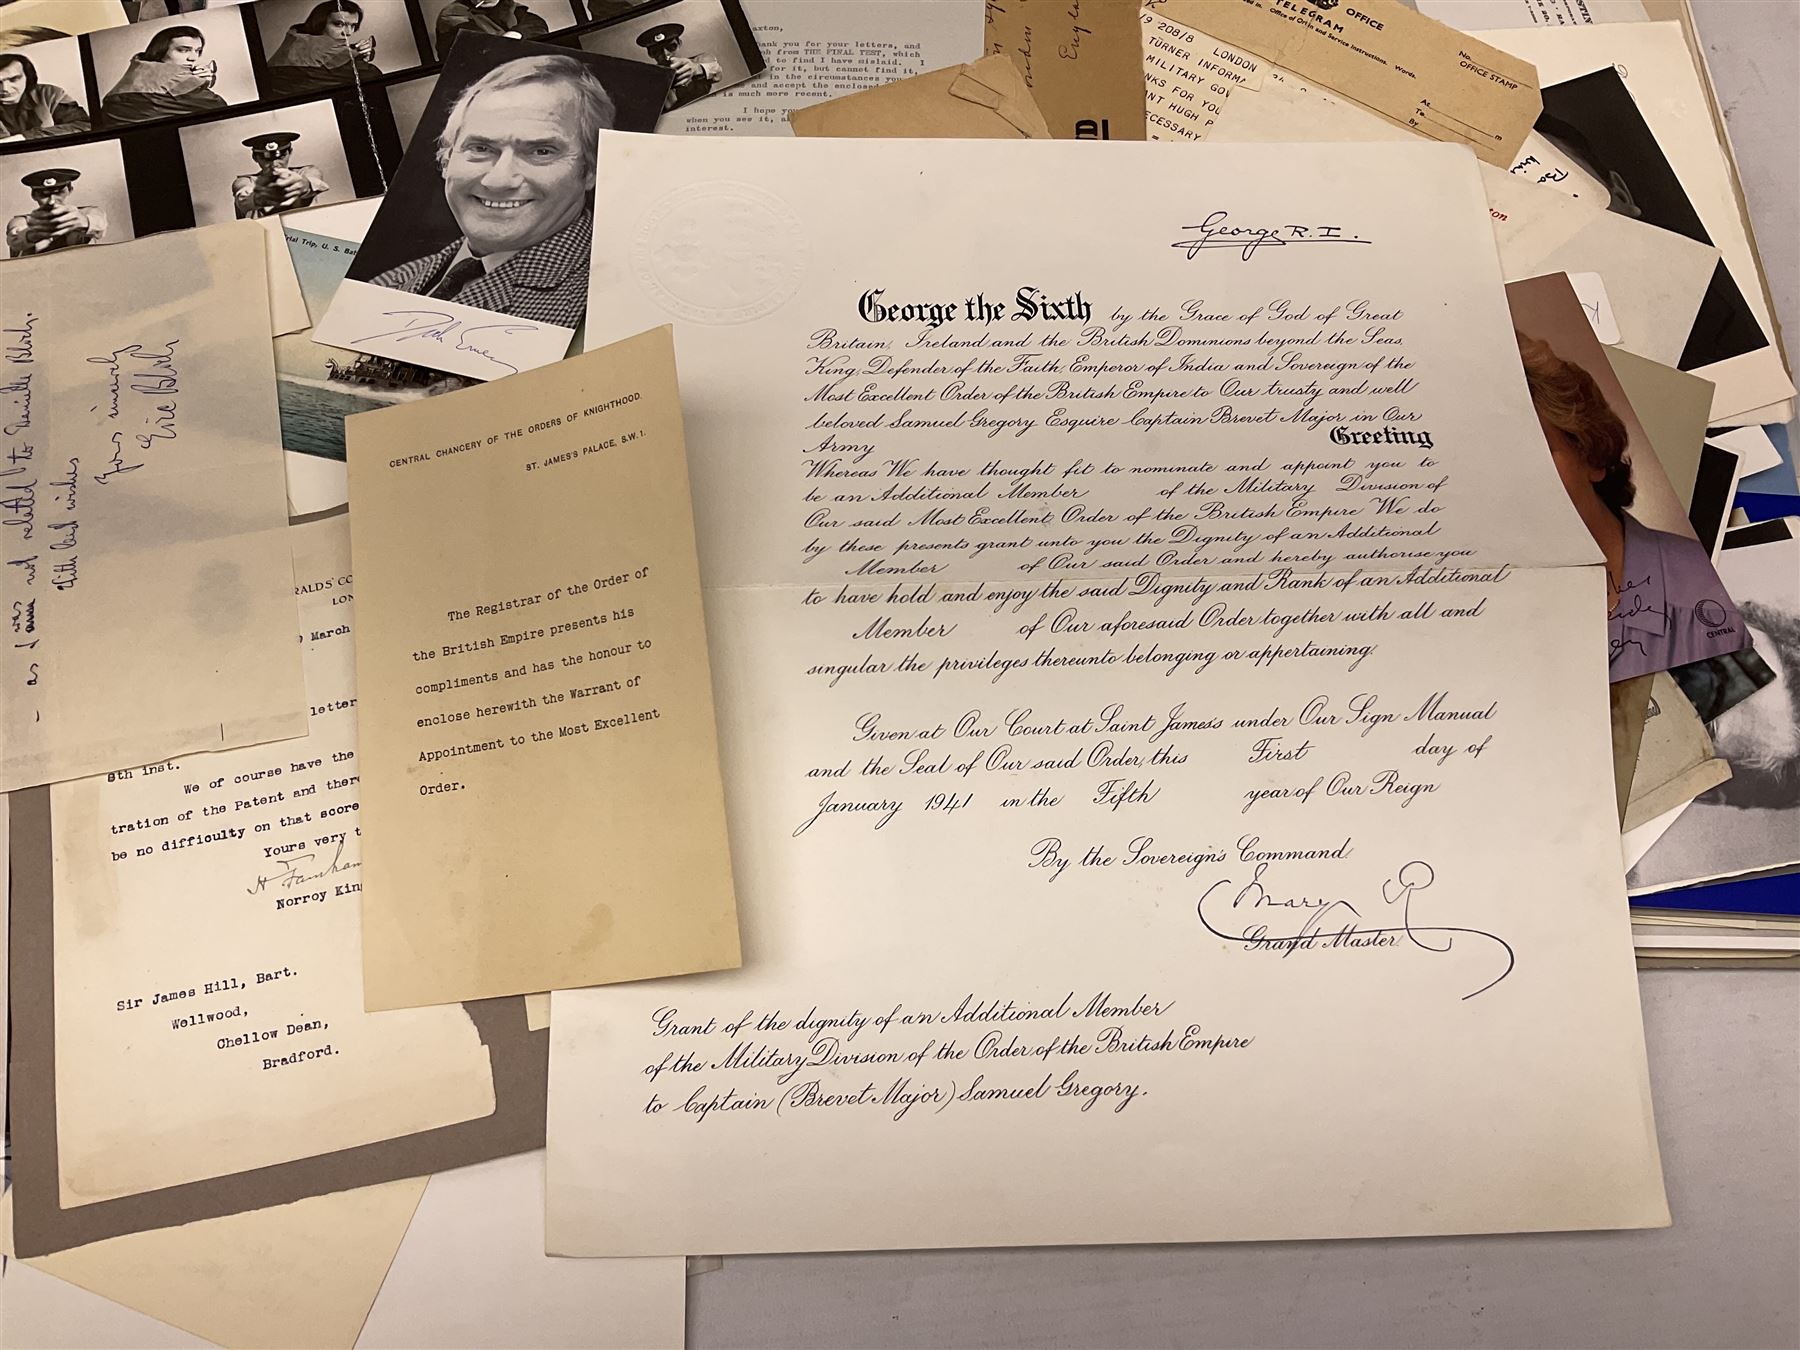 George R.I.
George the Sixth by the Grace of God of Great
Britain, Ireland and the British Dominions beyond the Seas,
King, Defender of the Faith, Emperor of India and Sovereign of the
Most Excellent Order of the British Empire to Our trusty and well
beloved Samuel Gregory Esquire Captain Brevet Major in Our
Army Greeting
Whereas We have thought fit to nominate and appoint you to
be an Additional Member of the Military Division of
Our said Most Excellent Order of the British Empire We do
by these presents grant unto you the Dignity of an Additional
Member of Our said Order and hereby authorise you
to have hold and enjoy the said Dignity and Rank of an Additional
Member of Our aforesaid Order together with all and
singular the privileges thereunto belonging or appertaining.
Given at Our Court at Saint James's under Our Sign Manual
and the Seal of Our said Order, this First day of
January 1941 in the Fifth year of Our Reign
By the Sovereign's Command.
Mary R
Grand Master.
Grant of the dignity of an Additional Member
of the Military Division of the Order of the British Empire
to Captain (Brevet Major) Samuel Gregory.
CENTRAL CHANCERY OF THE ORDERS OF KNIGHTHOOD.
ST. JAMES'S PALACE, S.W.1.
The Registrar of the Order of
the British Empire presents his
compliments and has the honour to
enclose herewith the Warrant of
Appointment to the Most Excellent
Order.
March
letter
8th inst.
We of course have the
tration of the Patent and
be no difficulty on that score
Yours very
Norroy
Sir James Hill, Bart.
Wellwood,
Chellow Dean,
Bradford.
- as I was not related to Danielle Bloch.
With best wishes
Yours sincerely
Trial Trip, U. S.
ank you for your letters, and
from THE FINAL TEST, which
to find I have mislaid. I
for it, but cannot find it,
in the circumstances
and accept the enclosed
is much more recent.
I hope
when you see it,
interest.
TELEGRAM
OFFICE
Office of Origin and Service Instructions. Words.
No.
OFFICE STAMP
At
To
By
m
208/8 LONDON
TURNER
MILITARY
FOR
HUGH P
CENTRAL